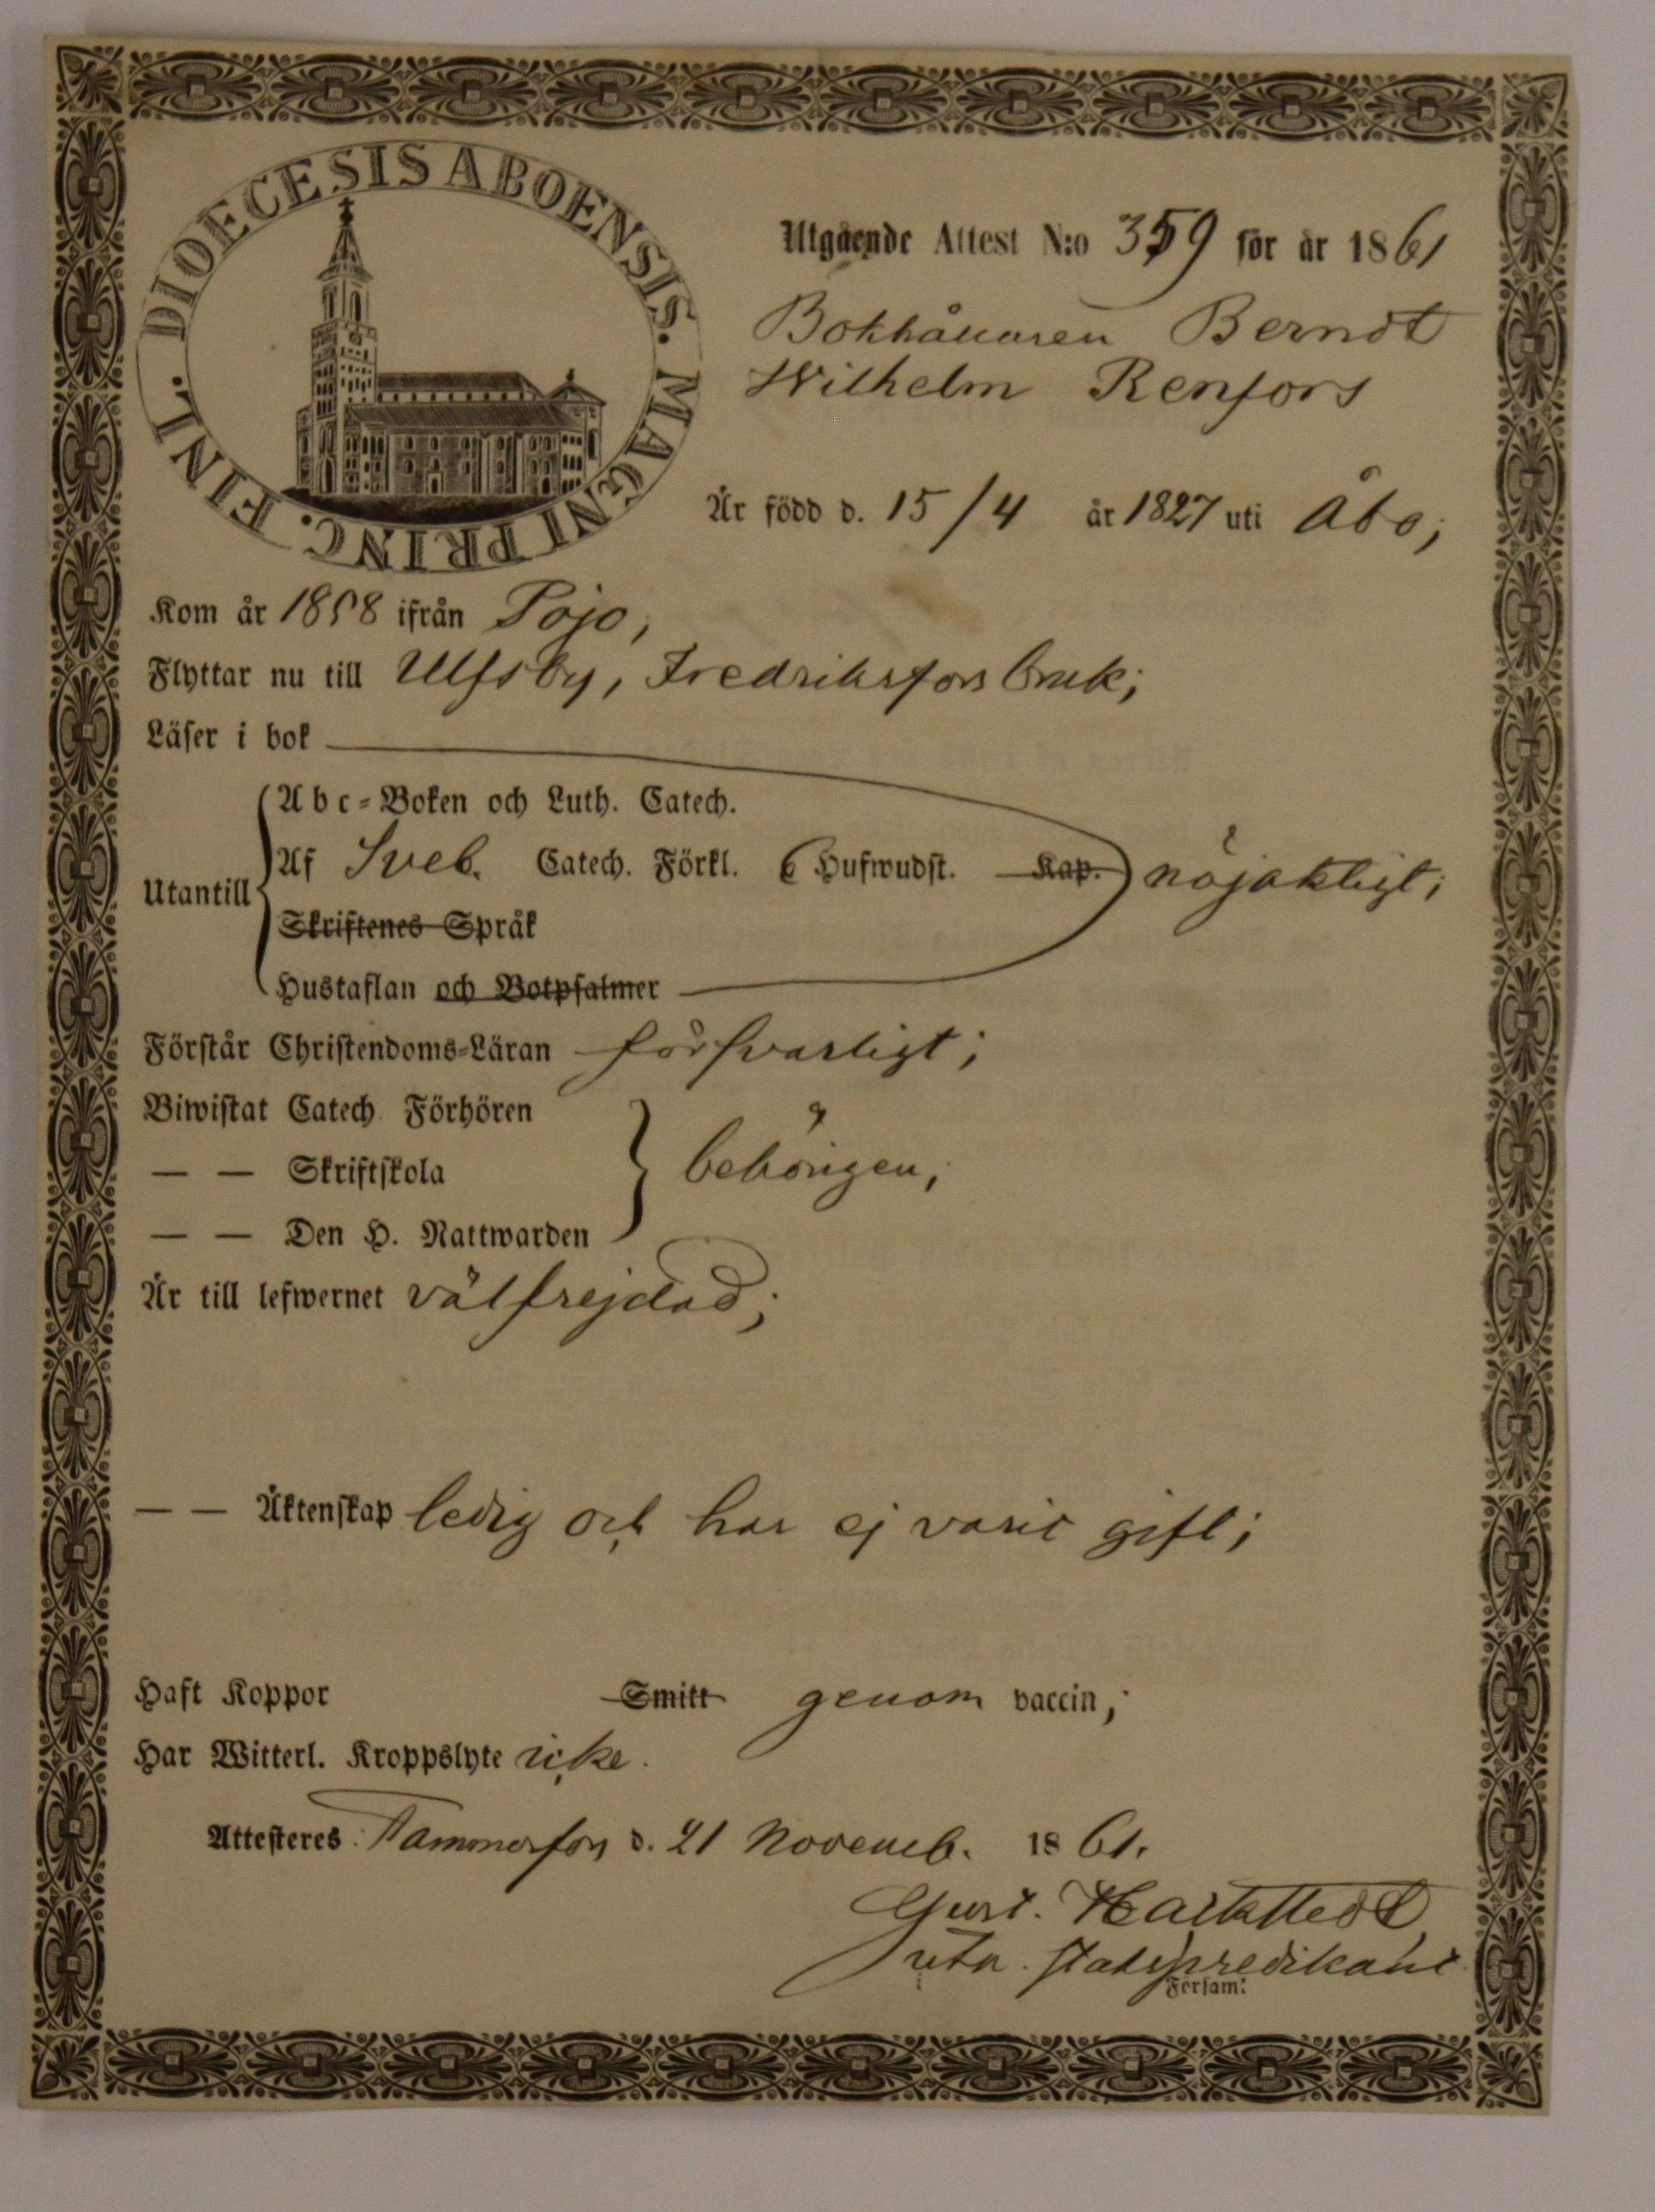 DIOECESIS ABOENSIS. MAGNI PRINC. FINL.
Utgående Attest N:o 359 för år 1861
Bokhållaren Berndt
Wilhelm Renfors
Är född d. 15/4 år 1827 uti Åbo;
Kom år 1858 ifrån Pojo,
Flyttar nu till Ulfsby, Fredriksfors bruk;
Läser i bok
Abc-Boken och Luth. Catech.
Utantill
Af Sveb. Catech. Förkl. 6 Hufwudst. Kap. nöjaktigt;
Skriftenes Språk
Hustaflan och Botpsalmer
Förstår Christendoms-Läran försvarligt;
Biwistat Catech. Förhören
— — Skriftskola behörigen,
— — Den H. Nattwarden
Är till lefwernet välfrejdad;
— — Äktenskap ledig och har ej varit gift;
Haft Koppor Smitt genom vaccin,;
Har Witterl. Kroppslyte icke.
Attesteres Tammerfors d. 21 Novemb. 1861.
Gust.
v. stadspredikant
i Försam: